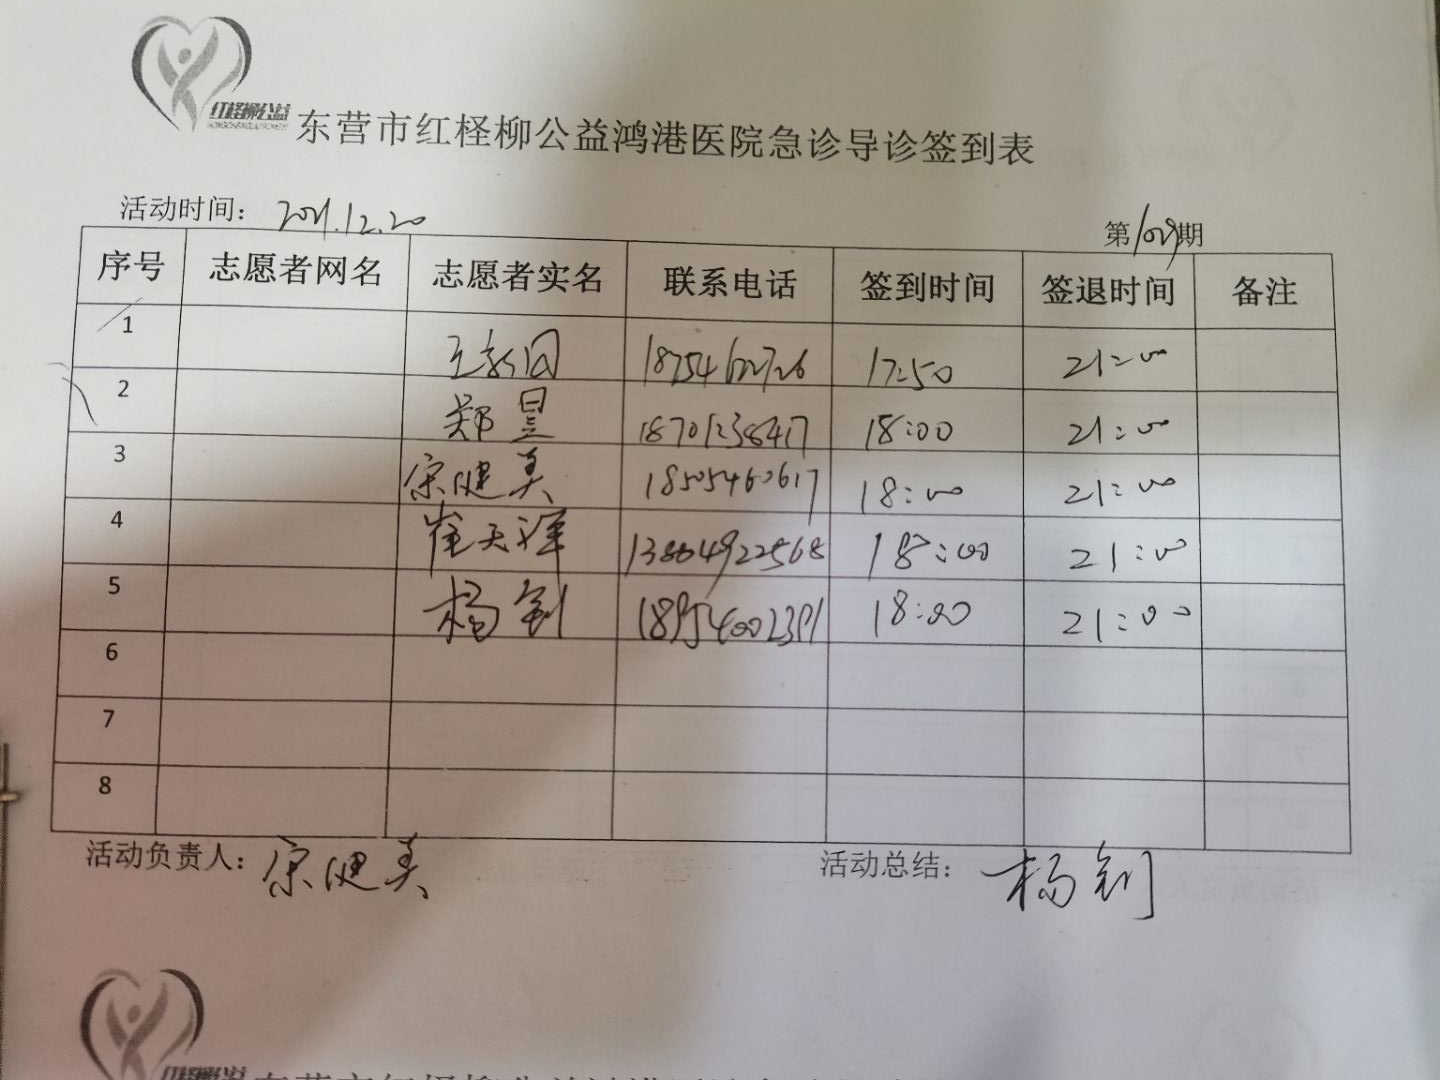 红柽柳公益
东营市红柽柳公益鸿港医院急诊导诊签到表
活动时间： 2021.12.20
第 期
序号 志愿者网名 志愿者实名 联系电话 签到时间 签退时间 备注
1 17:50 21:00
2 郑昱 18701238417 18:00 21:00
3 宋健美 18505460617 18:00 21:00
4 崔天祥 13864922568 18:00 21:00
5 杨钊 18:00 21:00
6
7
8
活动负责人：宋健美 活动总结：杨钊